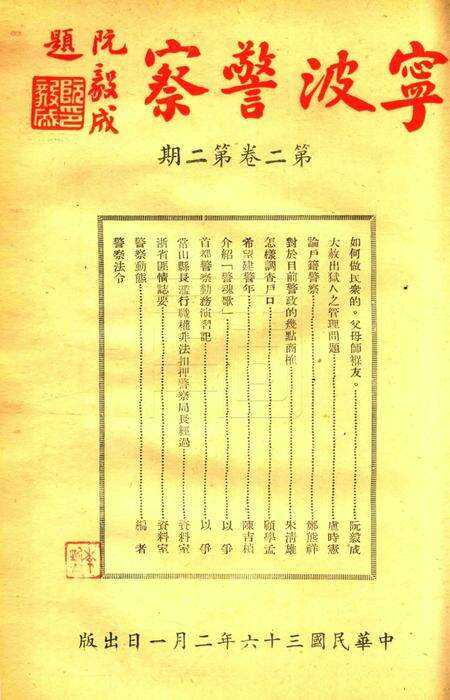 寧波警察
阮毅成
題
阮毅成印
第二卷第二期
如何做民衆的。父母師保友。……阮毅成
大赦出獄人之管理問題……虞時憲
論戶籍警察……鄭熊祥
對於目前警政的幾點商榷……朱清雄
怎樣調查戶口……顧學孟
希望建警年……陳吉楨
介紹「警魂歌」……以爭
首都警察勤務演習記……以爭
常山縣長濫行職權非法扣押警察局長經過……資料室
浙省匪情誌要……資料室
警察動態……編者
警察法令
中華民國三十六年二月一日出版